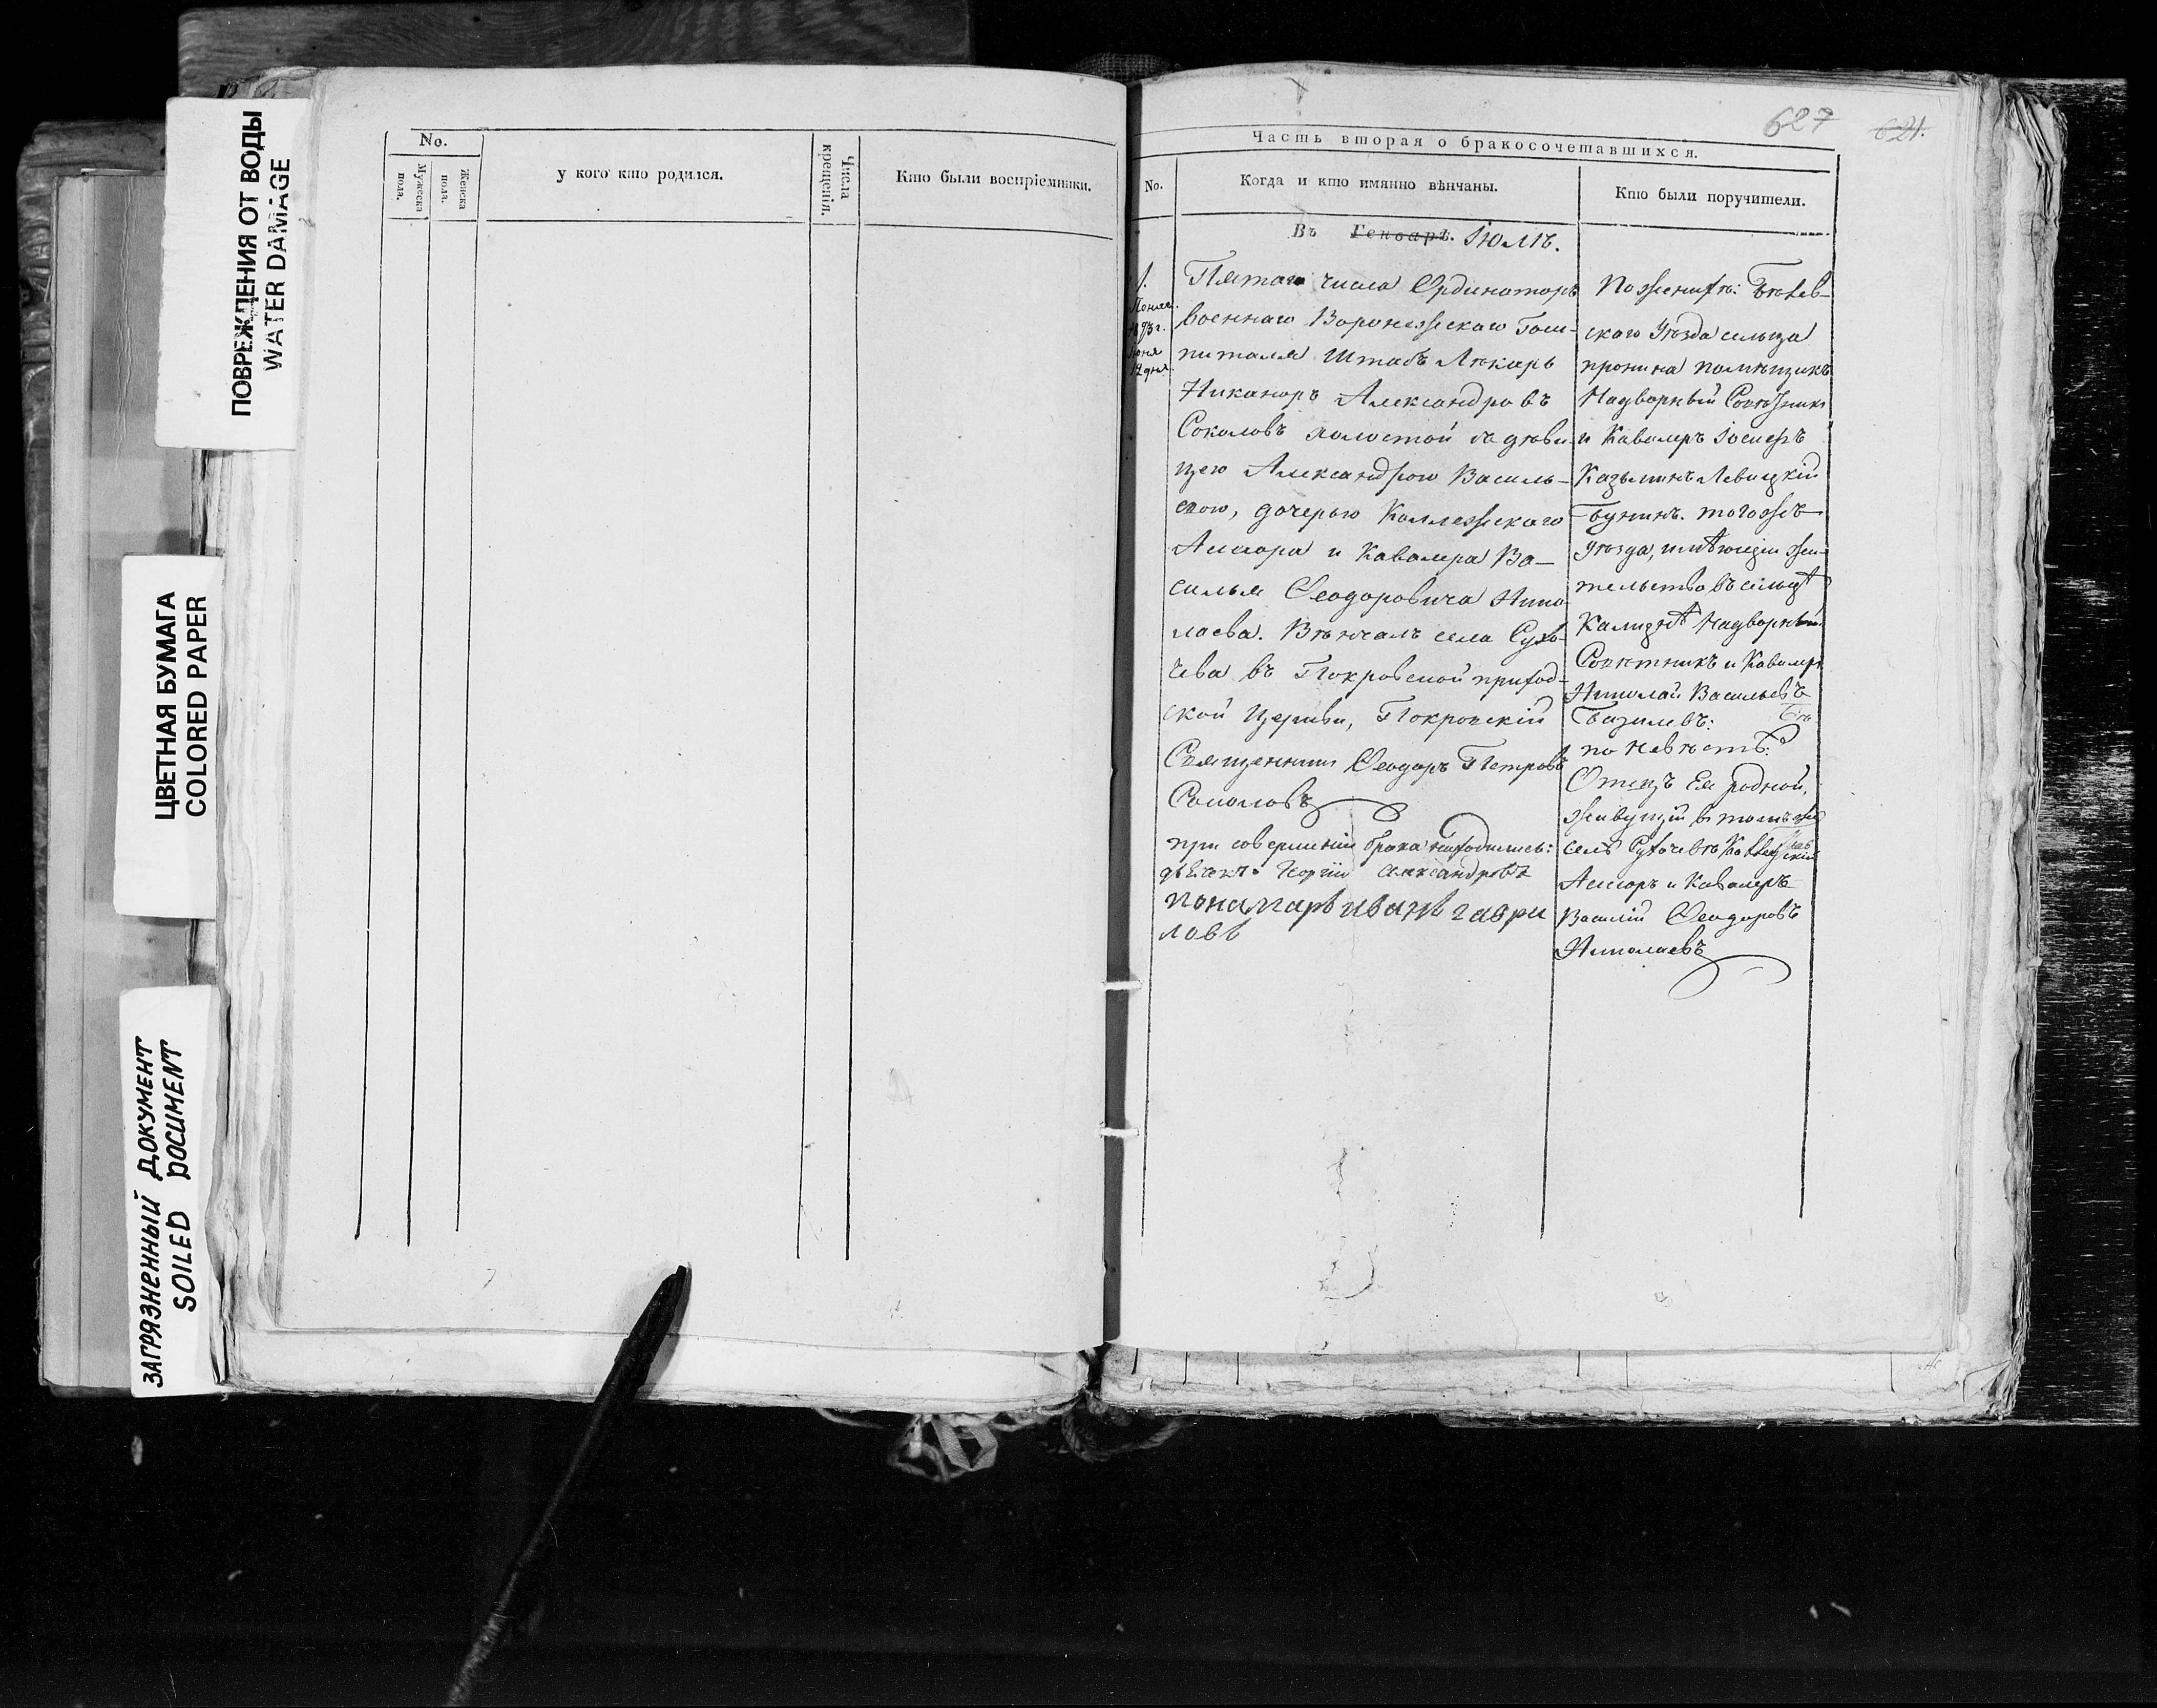 ПОВРЕЖДЕНИЯ ОТ ВОДЫ
WATER DAMAGE
ЦВЕТНАЯ БУМАГА
COLORED PAPER
ЗАГРЯЗНЕННЫЙ ДОКУМЕНТ
SOILED DOCUMENT
No.
Мужеска пола.
Женска пола.
у кого кто родился.
Числа крещенія.
Кто были воспріемники.
627
621.
Часть вторая о бракосочетавшихся.
No.
Когда и кто имянно вѣнчаны.
Кто были поручители.
Въ Генварѣ. Іюлѣ.
1.
12 дня.
Пятаго числа Ординаторъ
военнаго Воронежскаго Гош-
питаля Штабъ Лѣкарь
Никаноръ Александровъ
Соколовъ холостой съ дѣви-
цею Александрою Василь-
евою, дочерью Коллежскаго
Ассесора и Кавалера Ва-
силья Ѳеодоровича Нико-
лаева. Вѣнчалъ села Сухо-
чева въ Покровской приход-
ской Церкви, Покровскій
Священникъ Ѳеодоръ Петровъ
Соколовъ
при совершеніи брака находились:
дьячокъ Георгій Александровъ
понамарь иванъ гаври
ловъ
По женихѣ: Бѣлев-
скаго Уѣзда сельца
пронина помѣщикъ
Надворный Совѣтникъ
и Кавалеръ Іосифъ
Казьминъ Левицкій
Бунинъ. тогожъ
Уѣзда, имѣющій жи-
тельство въ сельцѣ
Надворный
Совѣтникъ и Кавалеръ
Николай Васильевъ
по невѣстѣ:
Отецъ Ея родной,
живущій въ томъ же
селѣ Сухочевѣ Коллежскій
Ассесоръ и Кавалеръ
Василій Ѳеодоровъ
Николаевъ